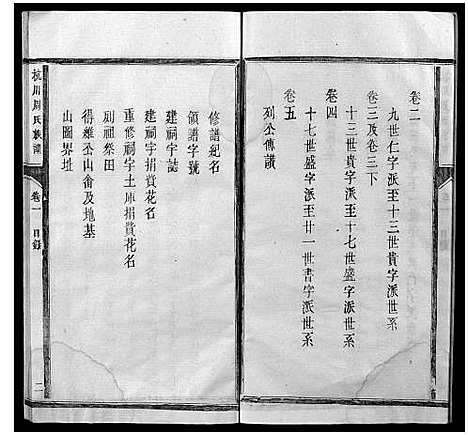 卷二
九世仁字派至十三世貴字派世系
卷三及卷三下
十三世貴字派至十七世盛字派世系
卷四
十七世盛字派至廿一世書字派世系
卷五
列公傳讚
修譜紀名
領譜字號
建祠宇誌
建祠宇捐貲花名
重修祠宇土庫捐貲花名
列祖祭田
得雄公山畬及地基
山圖界址
杭川周氏族譜
卷一
目錄
二